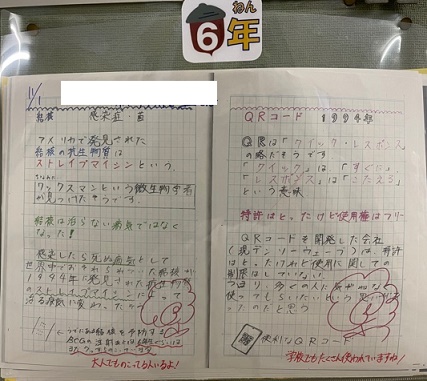 6年
11/1
結核 感染症・菌
アメリカで発見された
結核の抗生物質は
ストレプトマイシンという。
ワックスマンという微生物学者
が見つけたそうです。
結核は治らない病気ではなく
なった!
感染したら死ぬ病気として
世界中でおそれられていた結核が
1944年に発見された抗生物質
のストレプトマイシンによって
治る病気に変わった
大人でものこってる人いるよ!
QRコード 1994年
QRは「クイック・レスポンス」
の略だそうです
「クイック」は「すぐな」
「レスポンス」は「こたえる」
という意味
特許はとったけど使用権はフリー
QRコードを開発した会社
(現デンソーウェーブ)は、特許
はとったけれど使用に関しての
制限はしていない
つまり、多くの人に
使ってもらいたいという思いが
ったのだと思う
便利なQRコード
学校でもたくさん使われていますね!